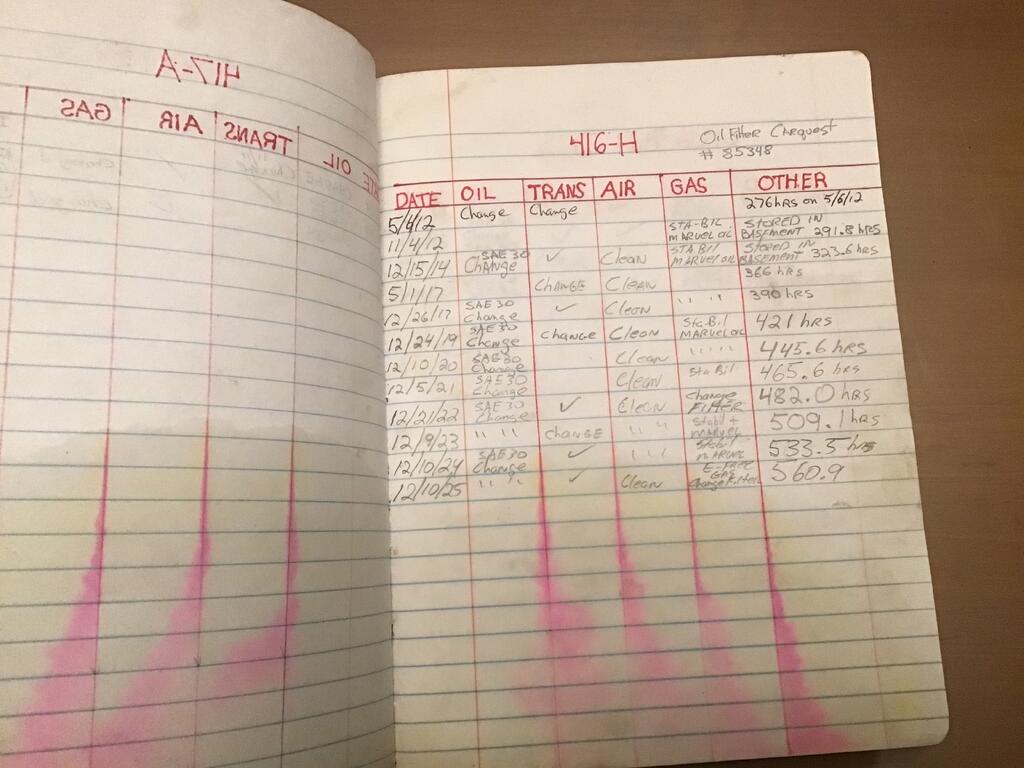 417-A
OIL TRANS AIR GAS
416-H
Oil Filter Carquest
# 85348
DATE OIL TRANS AIR GAS OTHER
5/4/12 Change Change 276 hrs on 5/6/12
11/4/12 STA-BIL MARVEL OIL STORED IN BASEMENT 291.8 hrs
12/15/14 SAE 30 Change ✓ Clean STA Bil MARVEL OIL STORED IN BASEMENT 323.6 hrs
5/1/17 CHANGE CLEAN 366 hrs
12/26/17 SAE 30 Change ✓ Clean " " " " 390 hrs
12/24/19 SAE 30 Change Change Clean Sta-Bil MARVEL OIL 421 hrs
12/10/20 SAE 30 Change Clean " " " " " 445.6 hrs
12/5/21 SAE 30 Change Clean Sta Bil 465.6 hrs
12/21/22 SAE 30 Change ✓ Clean Change FILTER 482.0 hrs
12/9/23 " " " " change " " " " Stabil + MARVEL 509.1 hrs
12/10/24 SAE 30 Change ✓ " " " Stabil MARVEL 533.5 hrs
12/10/25 " " " " ✓ Clean E-Free GAS Change Filter 560.9